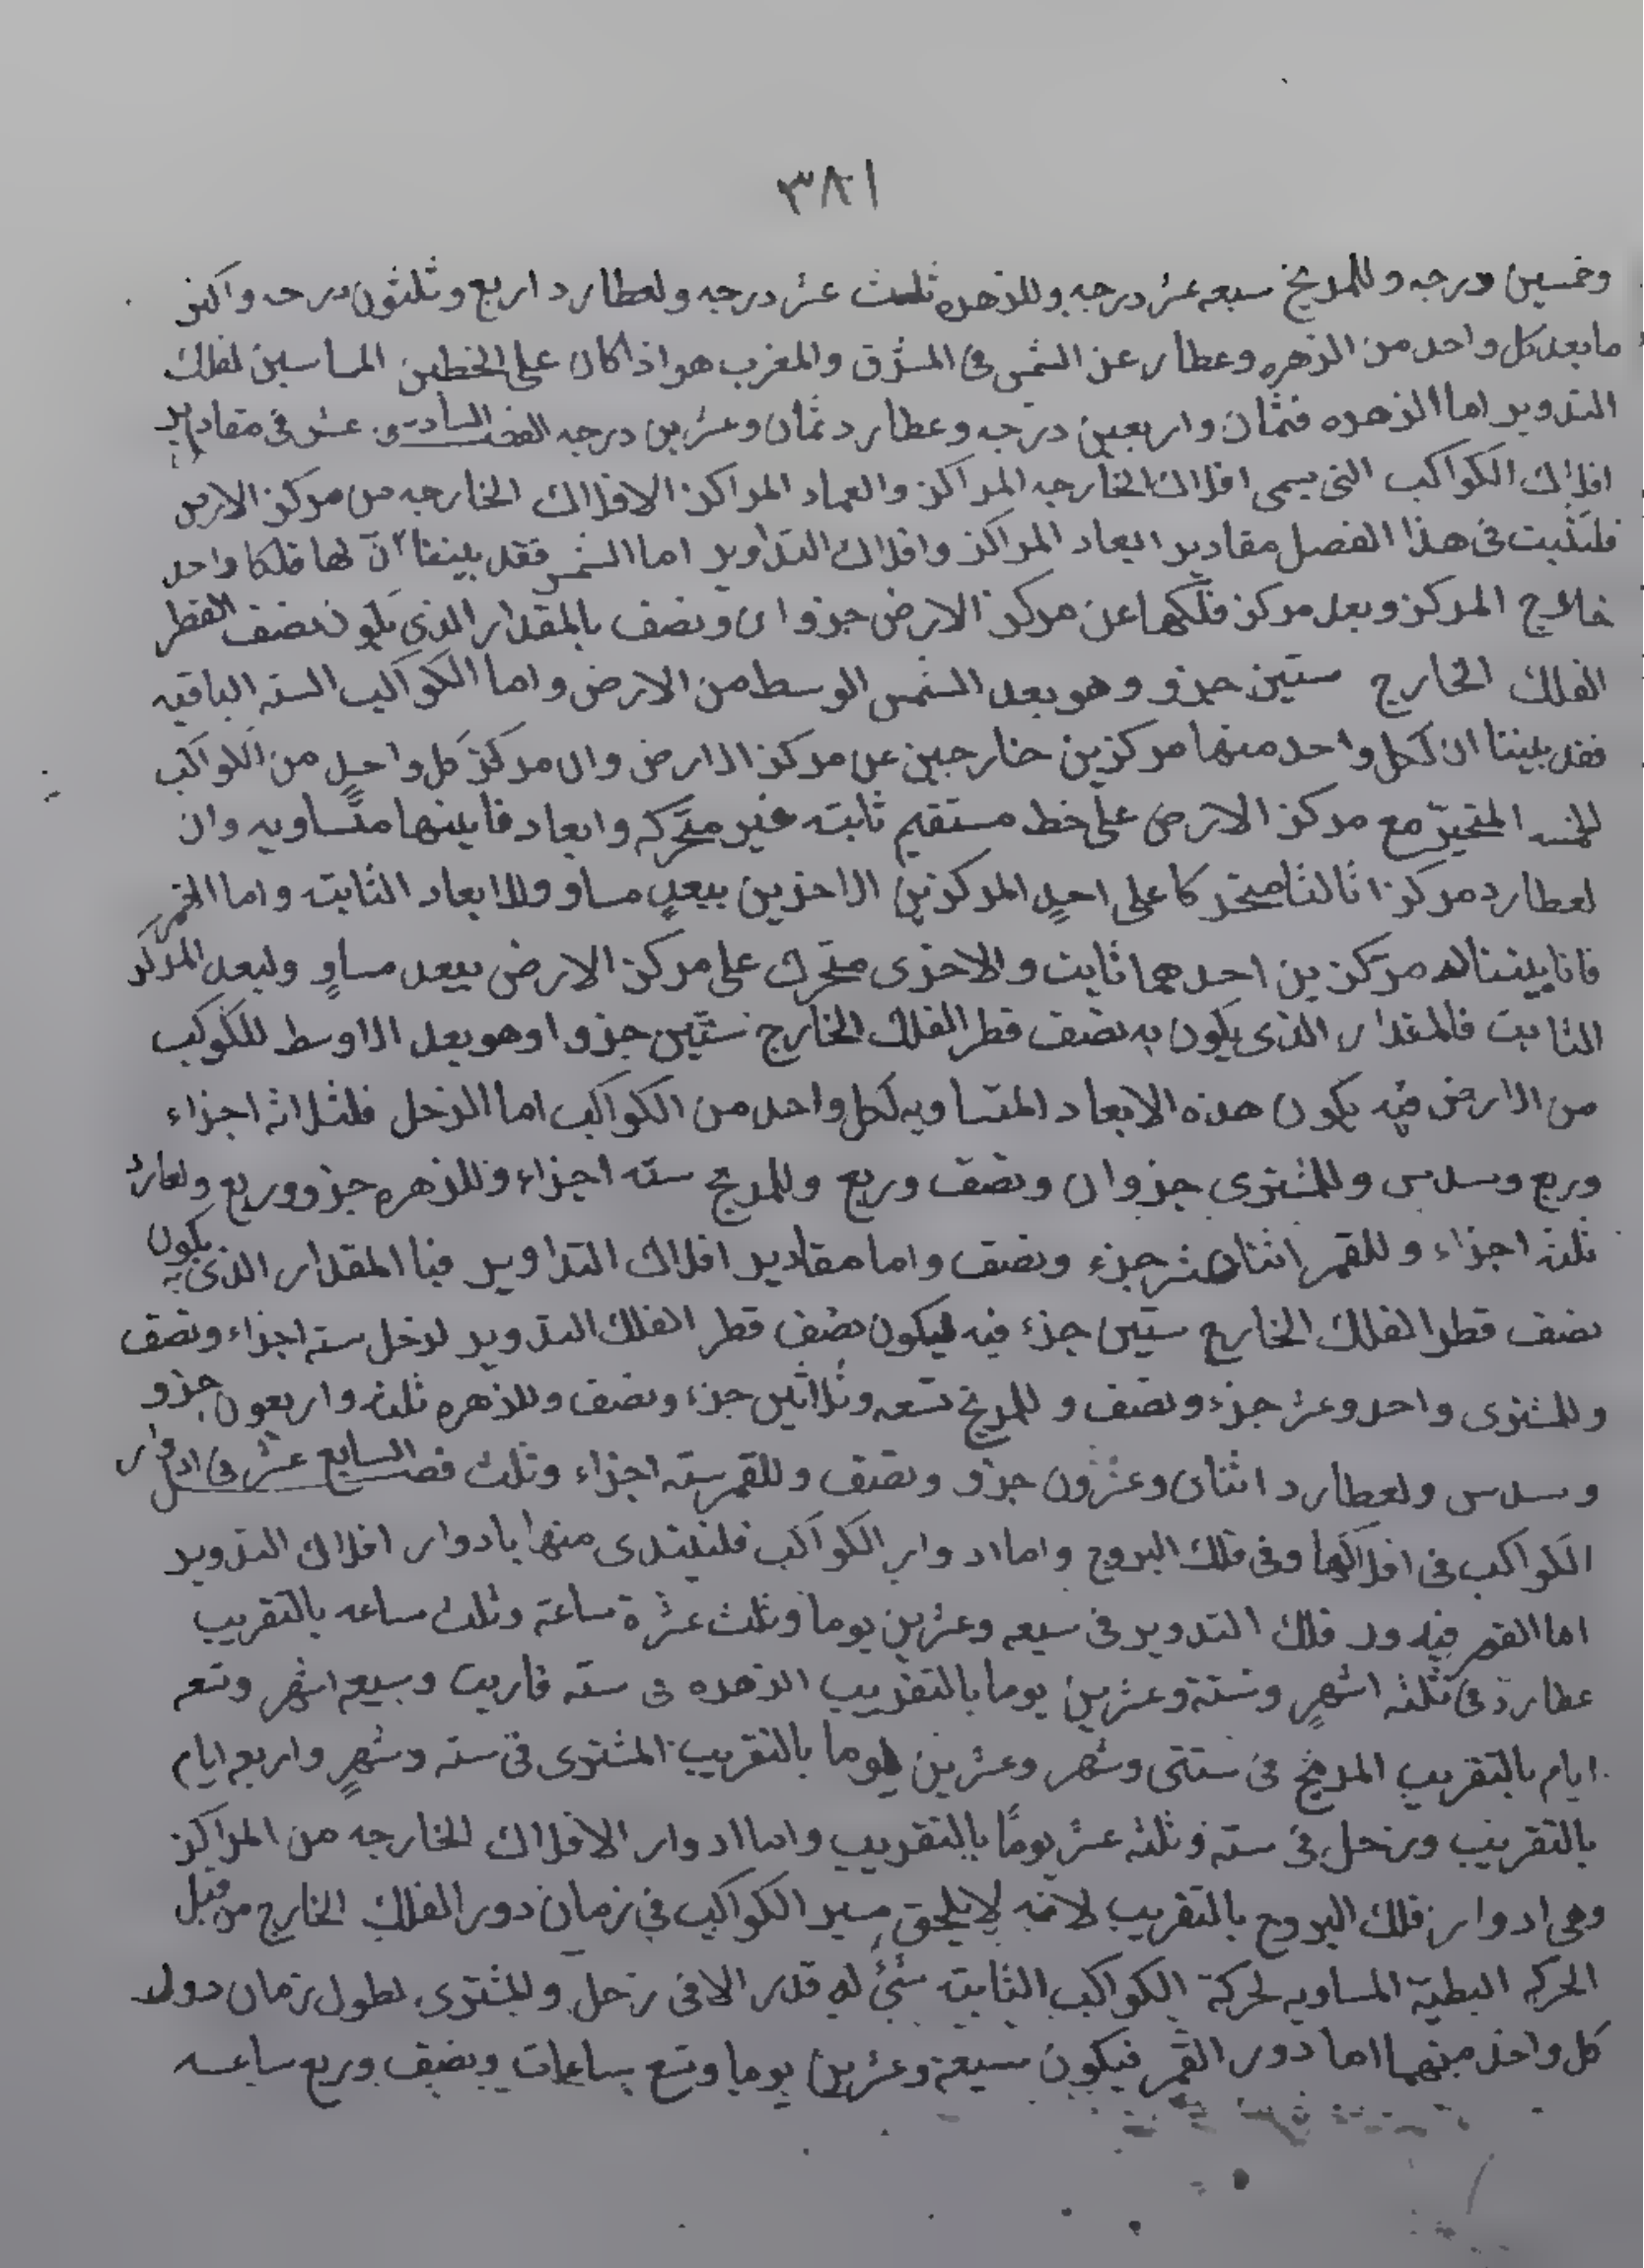 ٣٨١
وخمسين درجه وللمريخ سبعه عشر درجه وللزهره ثلث عشر درجه ولعطارد اربع وثلثون درجه واكثر
ما بعد كل واحد من الزهره وعطار عن الشمس فى المشرق والمغرب هو اذا كان على الخطين المماسين لفلك
التدوير اما الزهره فثمان واربعين درجه وعطارد ثمان وعشرين درجه الفصل السادس عشر فى مقادير
افلاك الكواكب التى يسمى افلاك الخارجه المراكز والعماد المراكز الافلاك الخارجه من مركز الارض
فلنثبت فى هذا الفصل مقادير ابعاد المراكز وافلاك التداوير اما الشمس فقد بيننا انّ لها فلكا واحد
خارج المركز وبعد مركز فلكها عن مركز الارض جزوان ونصف بالمقدار الذى يكون نصف القطر
الفلك الخارج ستين جزو وهو بعد الشمس الوسط من الارض واما الكواكب السته الباقيه
فقد بيننا ان لكل واحد منها مركزين خارجين عن مركز الارض وان مركز كل واحدٍ من الكواكب
للخمسه المتحيّر مع مركز الارض على خط مستقيم ثابته غير متحركه وابعاد فابينها متساويه وان
لعطارد مركزا ثالثا متحركا على احدٍ المركزين الاخرين ببعدٍ مساو وللابعاد الثابته واما القمر
فانا بيننا له مركزين احدهما ثابت والاخرى متحرك على مركز الارض ببعد مساوٍ ولبعد المركز
الثابت فالمقدار الذى يكون به نصف قطر الفلك الخارج ستّين جزوا وهو بعد الاوسط للكوكب
من الارض فيه يكون هذه الابعاد المتساويه لكل واحد من الكواكب اما الزحل فلثلاثه اجزاء
وربع وسدس وللمشترى جزوان ونصف وربع وللمريخ سته اجزاء وللزهره جزو وربع ولعطارد
ثلثه اجزاء وللقمر اثنان عشر جزء ونصف واما مقادير افلاك التداوير فبا المقدار الذى يكون به
نصف قطر الفلك الخارج ستين جزء فيه ليكون نصف قطر الفلك التدوير لزحل سته اجزاء ونصف
وللمشترى واحد وعشر جزء ونصف وللمريخ تسعه وثلاثين جزء ونصف وللزهره ثلثه واربعون جزو
وسدس ولعطارد اثنان وعشرون جزو ونصف وللقمر سته اجزاء وثلث فصل السابع عشر فى ادوار
الكواكب فى افلاكها وفى فلك البروج واما ادوار الكواكب فلنبتدى منها بادوار افلاك التدوير
اما القمر فيدور فلك التدوير فى سبعه وعشرين يوما وثلث عشرة ساعة وثلث ساعه بالتقريب
عطارد فى ثلثه اشهرٍ وستة وعشرين يوما بالتقريب الزهره فى سته فاريت وسبعه اشهر وتسعه
ايام بالتقريب المريخ فى سنتى وشهر وعشرين يوما بالتقريب المشترى فى سنه وشهرٍ واربعه ايام
بالتقريب وزحل فى سنه وثلثه عشر يومًا بالتقريب واما ادوار الافلاك الخارجه من المراكز
وهى ادوار فلك البروج بالتقريب لانه لا يلحق مسير الكواكب فى زمان دور الفلك الخارج من قبل
الحركه البطيّة المساويه لحركة الكواكب الثابته شئ له قدر الا فى زحل وللمشترى لطول زمان دول
كل واحد منهما اما دور القمر فيكون سبعة وعشرين يوما وتسع ساعات ونصف وربع ساعه